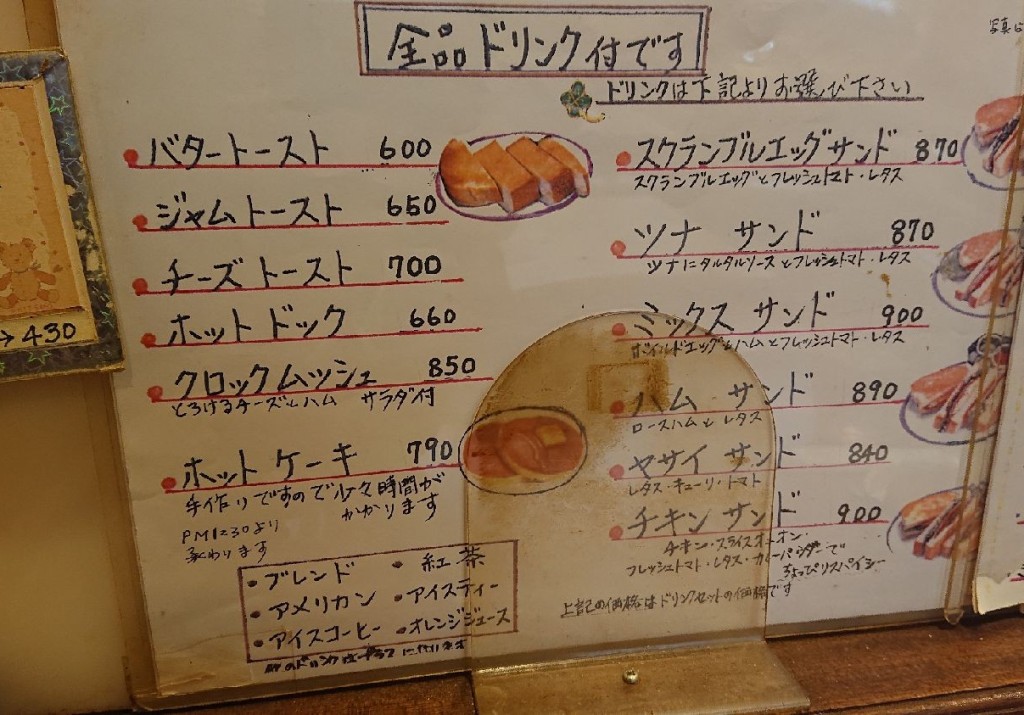 全品ドリンク付です
ドリンクは下記よりお選び下さい
写真は
→430
バタートースト 600
ジャムトースト 650
チーズトースト 700
ホットドック 660
クロックムッシュ 850
とろけるチーズとハム サラダ付
ホットケーキ 790
手作りですので少々時間が
かかります
PM1230より
承わります
スクランブルエッグサンド 870
スクランブルエッグとフレッシュトマト・レタス
ツナ サンド 870
ツナにタルタルソースとフレッシュトマト・レタス
ミックス サンド 900
ボイルドエッグとハムとフレッシュトマト・レタス
ハム サンド 890
ロースハムと レタス
ヤサイ サンド 840
レタス・キューリ・トマト
チキン サンド 900
チキン・スライスオニオン・
フレッシュトマト・レタス・カレーパウダーで
ちょっぴりスパイシー
上記の価格はドリンクセットの価格です
・ブレンド ・紅茶
・アメリカン ・アイスティー
・アイスコーヒー ・オレンジジュース